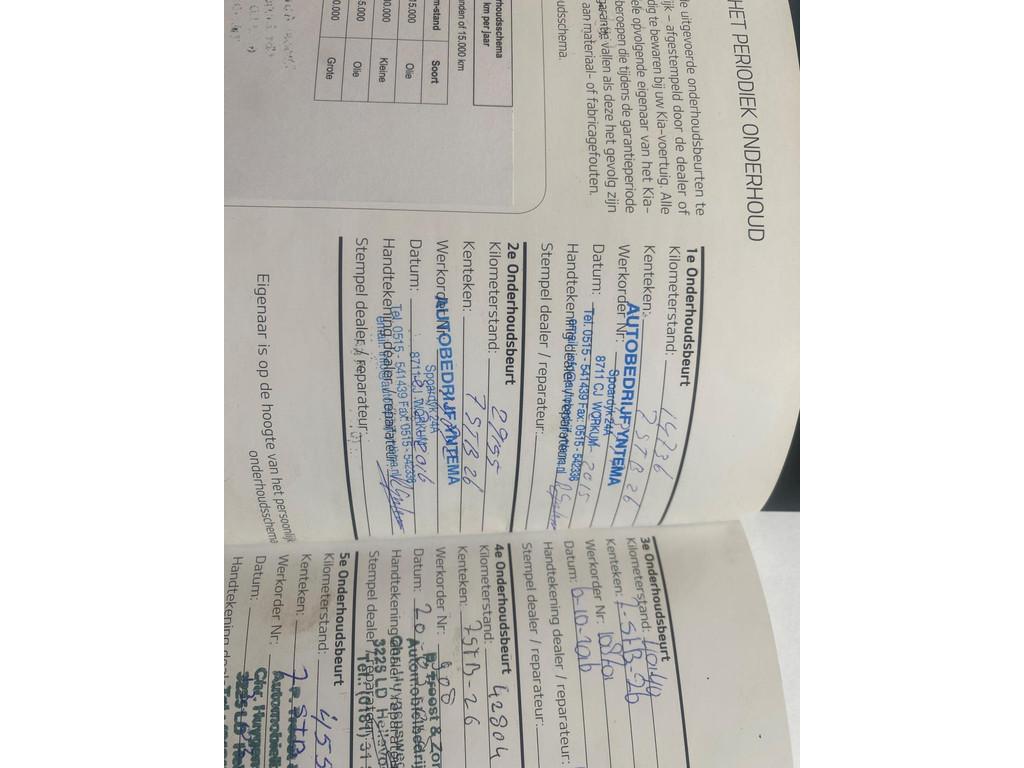 HET PERIODIEK ONDERHOUD
le uitgevoerde onderhoudsbeurten te
ijk – afgestempeld door de dealer of
dig te bewaren bij uw Kia-voertuig. Alle
ele opvolgende eigenaar van het Kia-
beroepen die tijdens de garantieperiode
garantie vallen als deze het gevolg zijn
aan materiaal- of fabricagefouten.
udsschema.
rhoudsschema
km per jaar
anden of 15.000 km
m-stand Soort
15.000 Olie
30.000 Kleine
5.000 Olie
0.000 Grote
1e Onderhoudsbeurt
Kilometerstand: 14736
Kenteken: 7 STB 26
Werkorder Nr:
AUTOBEDRIJF YNTEMA
Spoardyk 24A
8711 CJ WORKUM
Datum: 2015
Tel. 0515 - 541439 Fax: 0515 - 542338
Handtekening dealer / reparateur:
Stempel dealer / reparateur:
2e Onderhoudsbeurt
Kilometerstand: 29155
Kenteken: 7 STB 26
Werkorder Nr:
AUTOBEDRIJF YNTEMA
Spoardyk 24A
8711 CJ WORKUM
Datum: 2016
Tel. 0515 - 541439 Fax: 0515 - 542338
Handtekening dealer / reparateur:
Stempel dealer / reparateur:
Eigenaar is op de hoogte van het persoonlijk
onderhoudsschema
3e Onderhoudsbeurt
Kilometerstand:
Kenteken: 7-STB-26
Werkorder Nr:
Datum:
Handtekening dealer / reparateur:
Stempel dealer / reparateur:
4e Onderhoudsbeurt
Kilometerstand: 42804
Kenteken: 7STB-26
Werkorder Nr: 908
Datum: 20-
Handtekening dealer / reparateur
Stempel dealer / reparateur
& Zon
Automobielbedrij
3225 LD Hellevo
Tel.: (0181) 31
5e Onderhoudsbeurt
Kilometerstand: 455
Kenteken: 7-STB
Werkorder Nr:
Automobielb
Datum:
Chr. Huygen
Handtekening